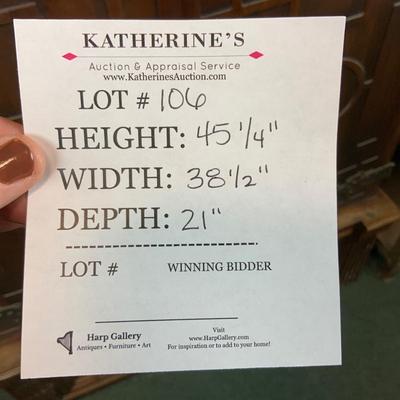 KATHERINE'S
Auction & Appraisal Service
www.KatherinesAuction.com
LOT # 106
HEIGHT: 45 1/4"
WIDTH: 38 1/2"
DEPTH: 21"
LOT # WINNING BIDDER
Harp Gallery
Antiques • Furniture • Art
Visit
www.HarpGallery.com
For inspiration or to add to your home!